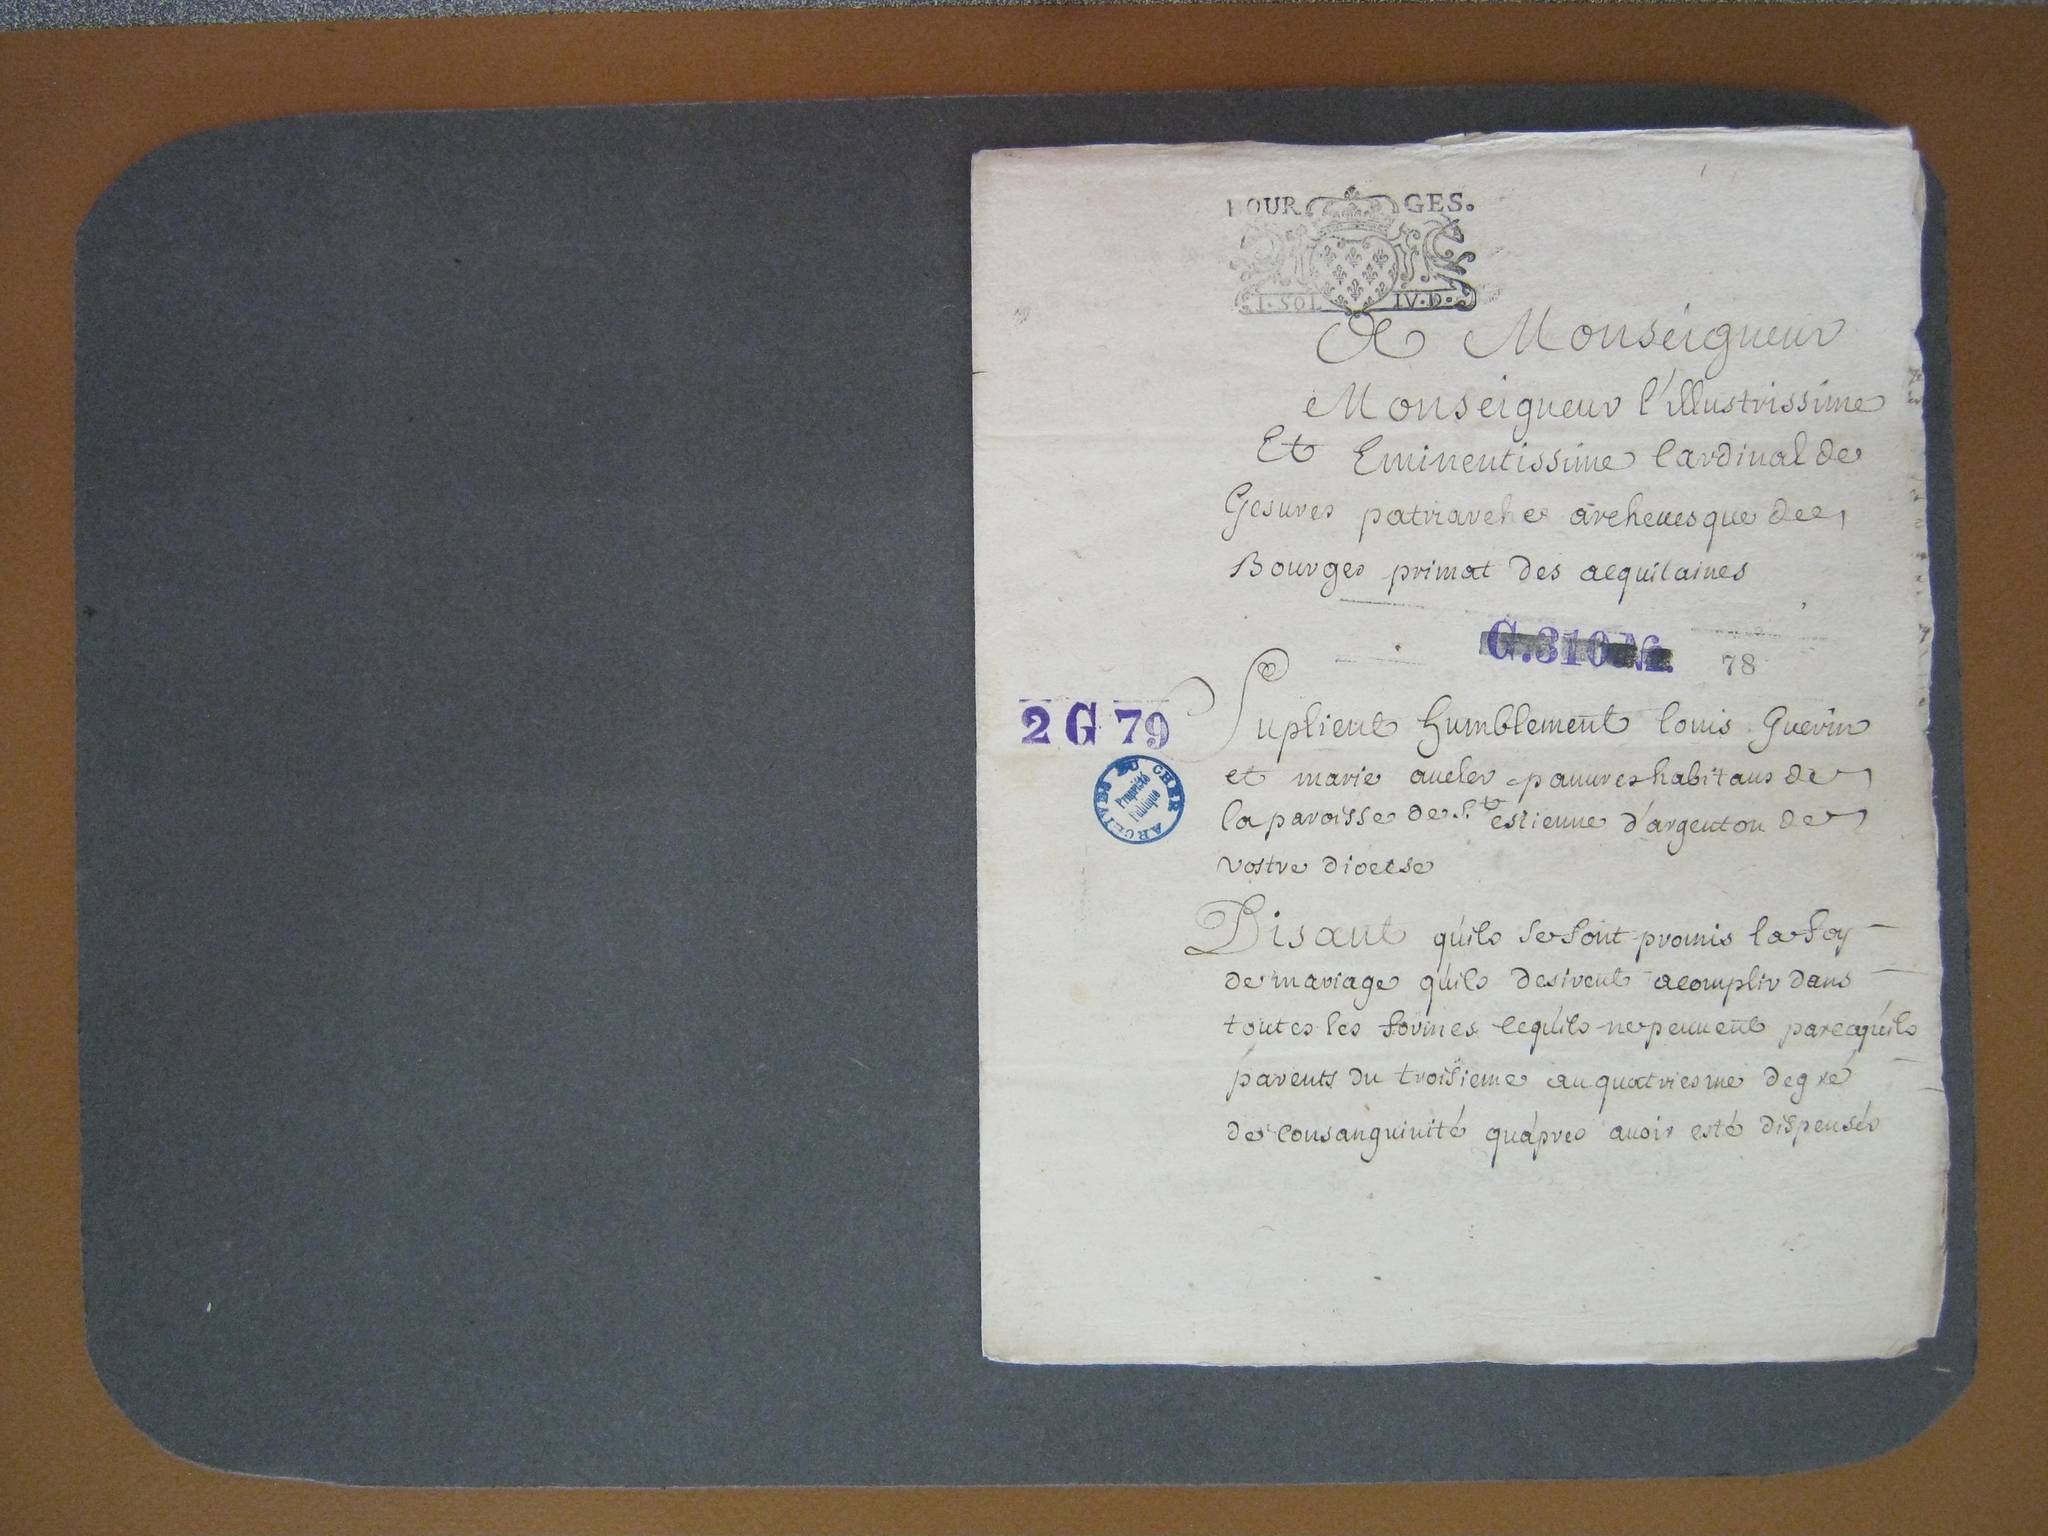 BOURGES.
I. SOL IV. D.
A Monseigneur
Monseigneur l'illustrissime
Et Eminentissime Cardinal de
Gesures patriarche archeuesque de
Bourges primat des acquitaines
G.310
78
Suplient humblement louis Guerin
2 G 79
et marie aucler pauures habitans de
la paroisse de St estienne d'argenton de
vostre diocese
ARCHIVES DU CHER
Propriété
Publique
Disant quils se sont promis la foy
de mariage quils desirent acomplir dans
toutes les formes cequils ne peuuent parcequils
parents du troisieme au quatriesme degré
de consanguinité quápres auoir esté dispensés